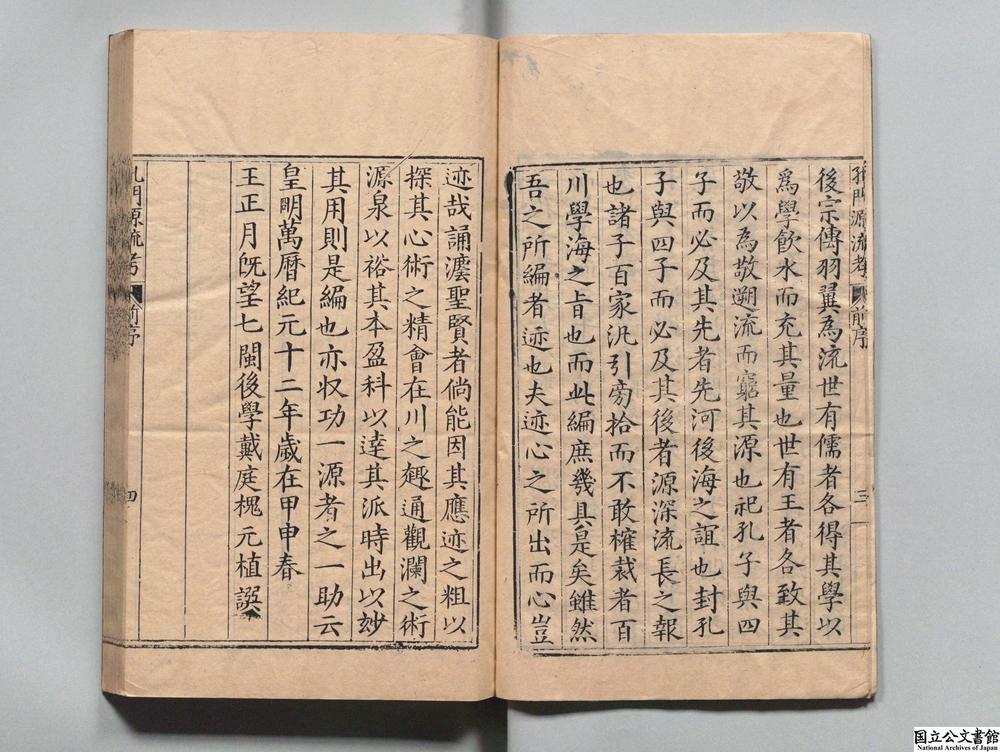 孔門源流考 前序 三
後宗傳羽翼為流世有儒者各得其學以
爲學飲水而充其量也世有王者各致其
敬以為敬遡流而窮其源也祀孔子與四
子而必及其先者先河後海之誼也封孔
子與四子而必及其後者源深流長之報
也諸子百家汎引旁拾而不敢榷裁者百
川學海之旨也而此編庶幾具是矣雖然
吾之所編者迹也夫迹心之所出而心豈
迹哉誦濃聖賢者倘能因其應迹之粗以
探其心術之精會在川之趣通觀瀾之術
源泉以裕其本盈科以達其派時出以玅
其用則是編也亦収功一源者之一助云
皇明萬曆紀元十二年歲在甲申春
王正月旣望七閩後學戴庭槐元植譔
孔門源流考 前序 四
国立公文書館
National Archives of Japan